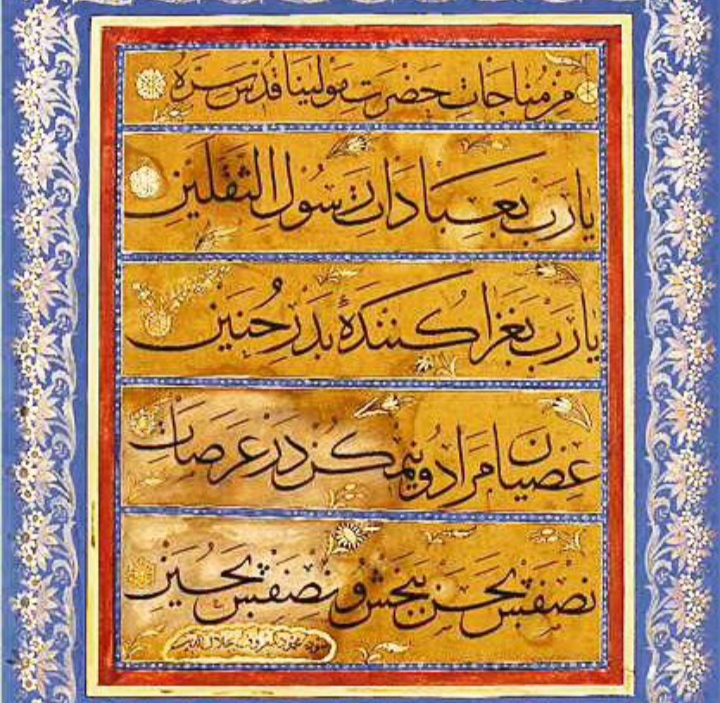 من مناجات حضرت مولینا قدس سره
یا رب بعبادات رسول الثقلین
یا رب بغزا کننده بدر حنین
عصیان مرا دو نیم کن در عرصات
نصفش بحسن ببخش و نصفش بحسین